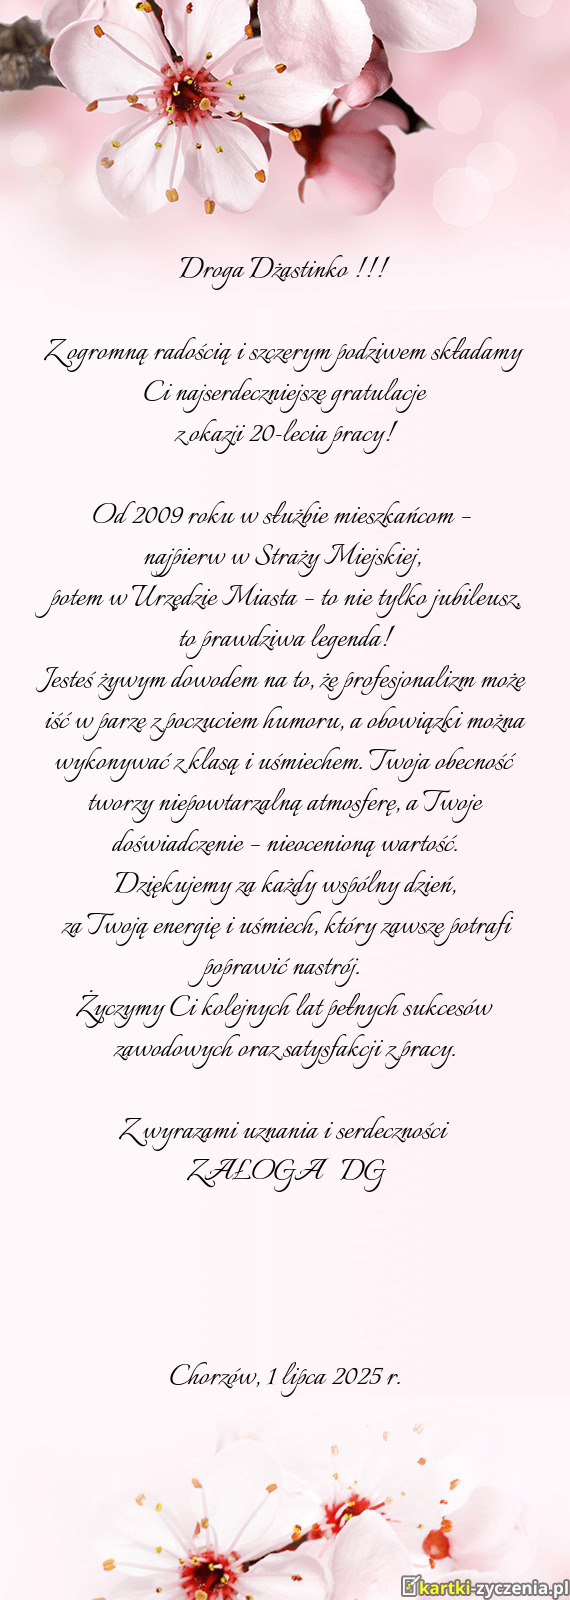 Droga Dżastinko !!!
Z ogromną radością i szczerym podziwem składamy
Ci najserdeczniejsze gratulacje
z okazji 20-lecia pracy!
Od 2009 roku w służbie mieszkańcom –
najpierw w Straży Miejskiej,
potem w Urzędzie Miasta – to nie tylko jubileusz,
to prawdziwa legenda!
Jesteś żywym dowodem na to, że profesjonalizm może
iść w parze z poczuciem humoru, a obowiązki można
wykonywać z klasą i uśmiechem. Twoja obecność
tworzy niepowtarzalną atmosferę, a Twoje
doświadczenie – nieocenioną wartość.
Dziękujemy za każdy wspólny dzień,
za Twoją energię i uśmiech, który zawsze potrafi
poprawić nastrój.
Życzymy Ci kolejnych lat pełnych sukcesów
zawodowych oraz satysfakcji z pracy.
Z wyrazami uznania i serdeczności
ZAŁOGA DG
Chorzów, 1 lipca 2025 r.
kartki-zyczenia.pl